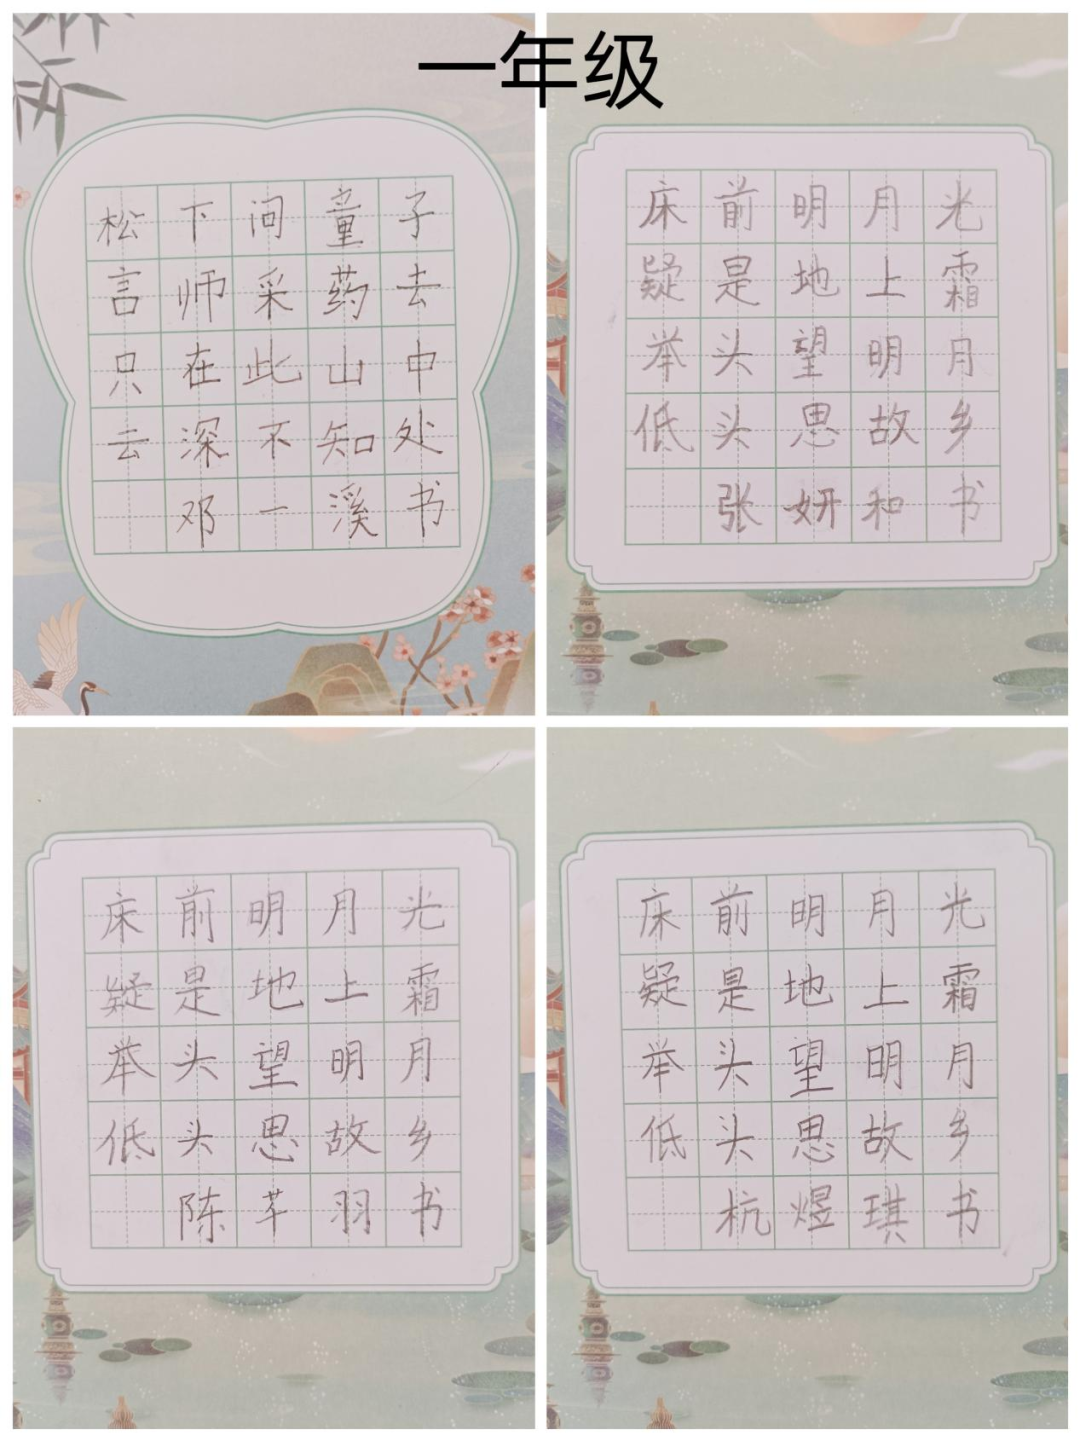 一年级
松下问童子
言师采药去
只在此山中
云深不知处
邓一溪书
床前明月光
疑是地上霜
举头望明月
低头思故乡
张妍和书
床前明月光
疑是地上霜
举头望明月
低头思故乡
陈芊羽书
床前明月光
疑是地上霜
举头望明月
低头思故乡
杭煜琪书